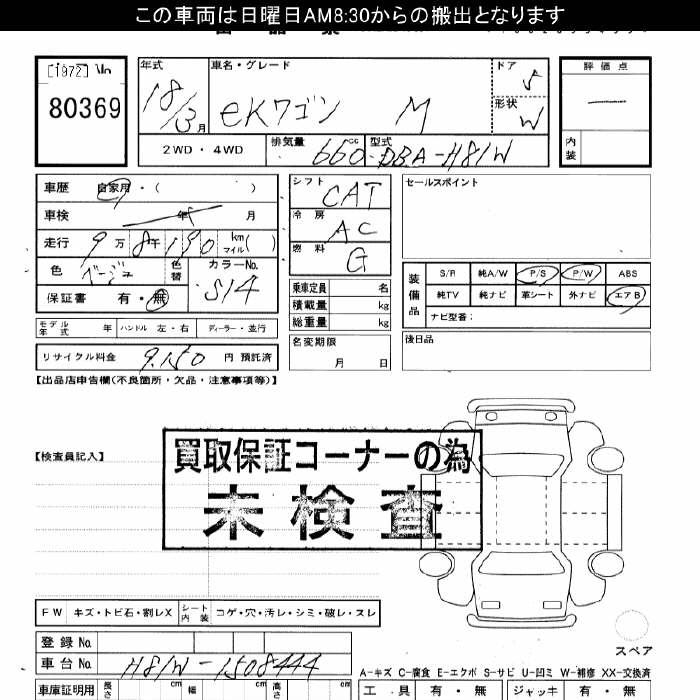 この車両は日曜日AM8:30からの搬出となります
[1972] No
80369
年式 18/3月
車名・グレード eKワゴン M
ドア 5
形状 W
評価点 —
内装
2WD・4WD
排気量 660cc
型式 DBA-H81W
車歴 自家用・( )
車検 年 月
走行 9万8千190 km マイル( )
色 ベージュ 色替 カラーNo. S14
保証書 有・無
モデル年式 年 ハンドル 左・右 ディーラー・並行
リサイクル料金 9,150 円 預託済
シフト CAT
冷房 AC
燃料 G
乗車定員 名
積載量 kg
総重量 kg
名変期限 月 日
セールスポイント
装備品
S/R 純A/W P/S P/W ABS
純TV 純ナビ 革シート 外ナビ エアB
ナビ型番:
後日品
【出品店申告欄(不良箇所・欠品・注意事項等)】
【検査員記入】
買取保証コーナーの為
未検査
FW キズ・トビ石・割レX シート内装 コゲ・穴・汚レ・シミ・破レ・スレ
登録No
車台No H81W-1508444
車庫証明用 長さ cm 幅 cm 高さ cm
スペア
A-キズ C-腐食 E-エクボ S-サビ U-凹ミ W-補修 XX-交換済
工具 有・無 ジャッキ 有・無